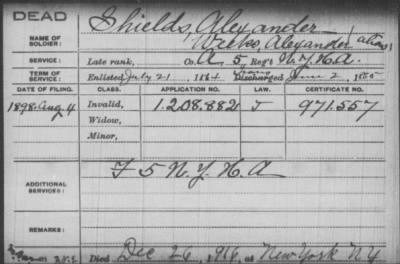 DEAD
NAME OF SOLDIER: Shields, Alexander
Weeks, Alexander alias
SERVICE: Late rank, Co. A 5 Reg't N.Y.H.A.
TERM OF SERVICE: Enlisted July 21, 1864 Discharged June 2, 1865
DATE OF FILING. CLASS. APPLICATION NO. LAW. CERTIFICATE NO.
1898. Aug. 4 Invalid, 1.208.882 J 971.557
Widow,
Minor,
F 5 N.Y.H.A
ADDITIONAL SERVICES:
REMARKS:
Died Dec 26, 1916, at New York N.Y.